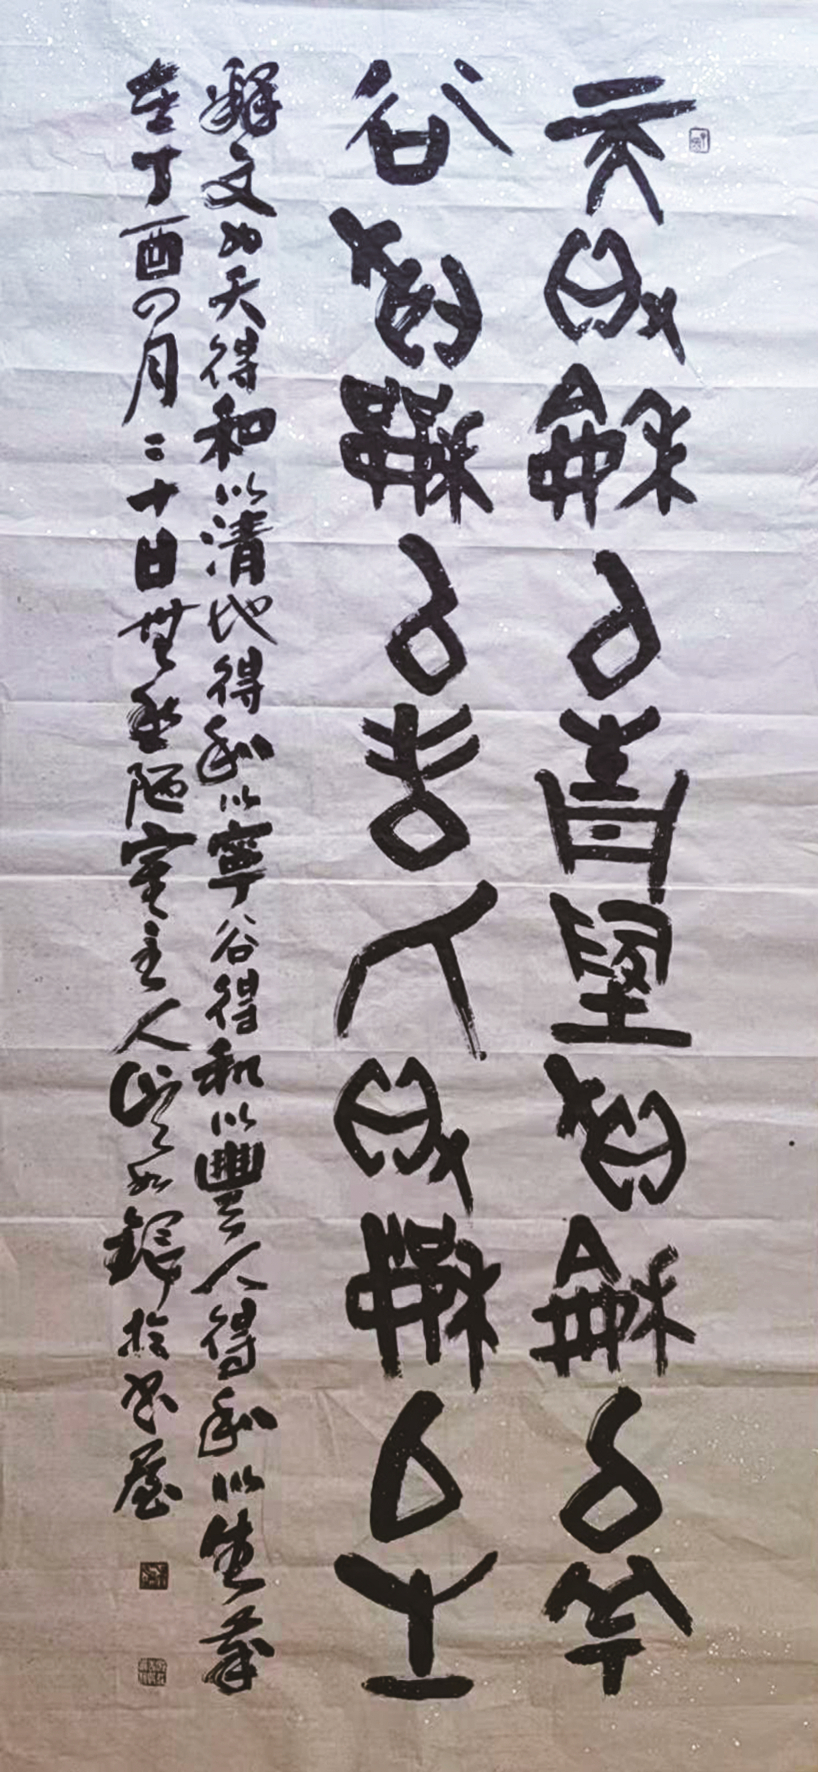 天得龢以青墬得龢以寧
谷得龢以豐人得龢以生
釋文天得和以清地得和以寧谷得和以豐人得和以生歲
在丁酉四月二十日陋室主人於屋